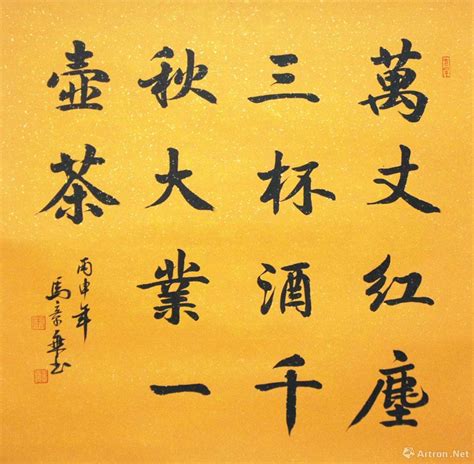 萬丈红塵
三杯酒千
秋大業一
壺茶
丙申年
Artron.Net